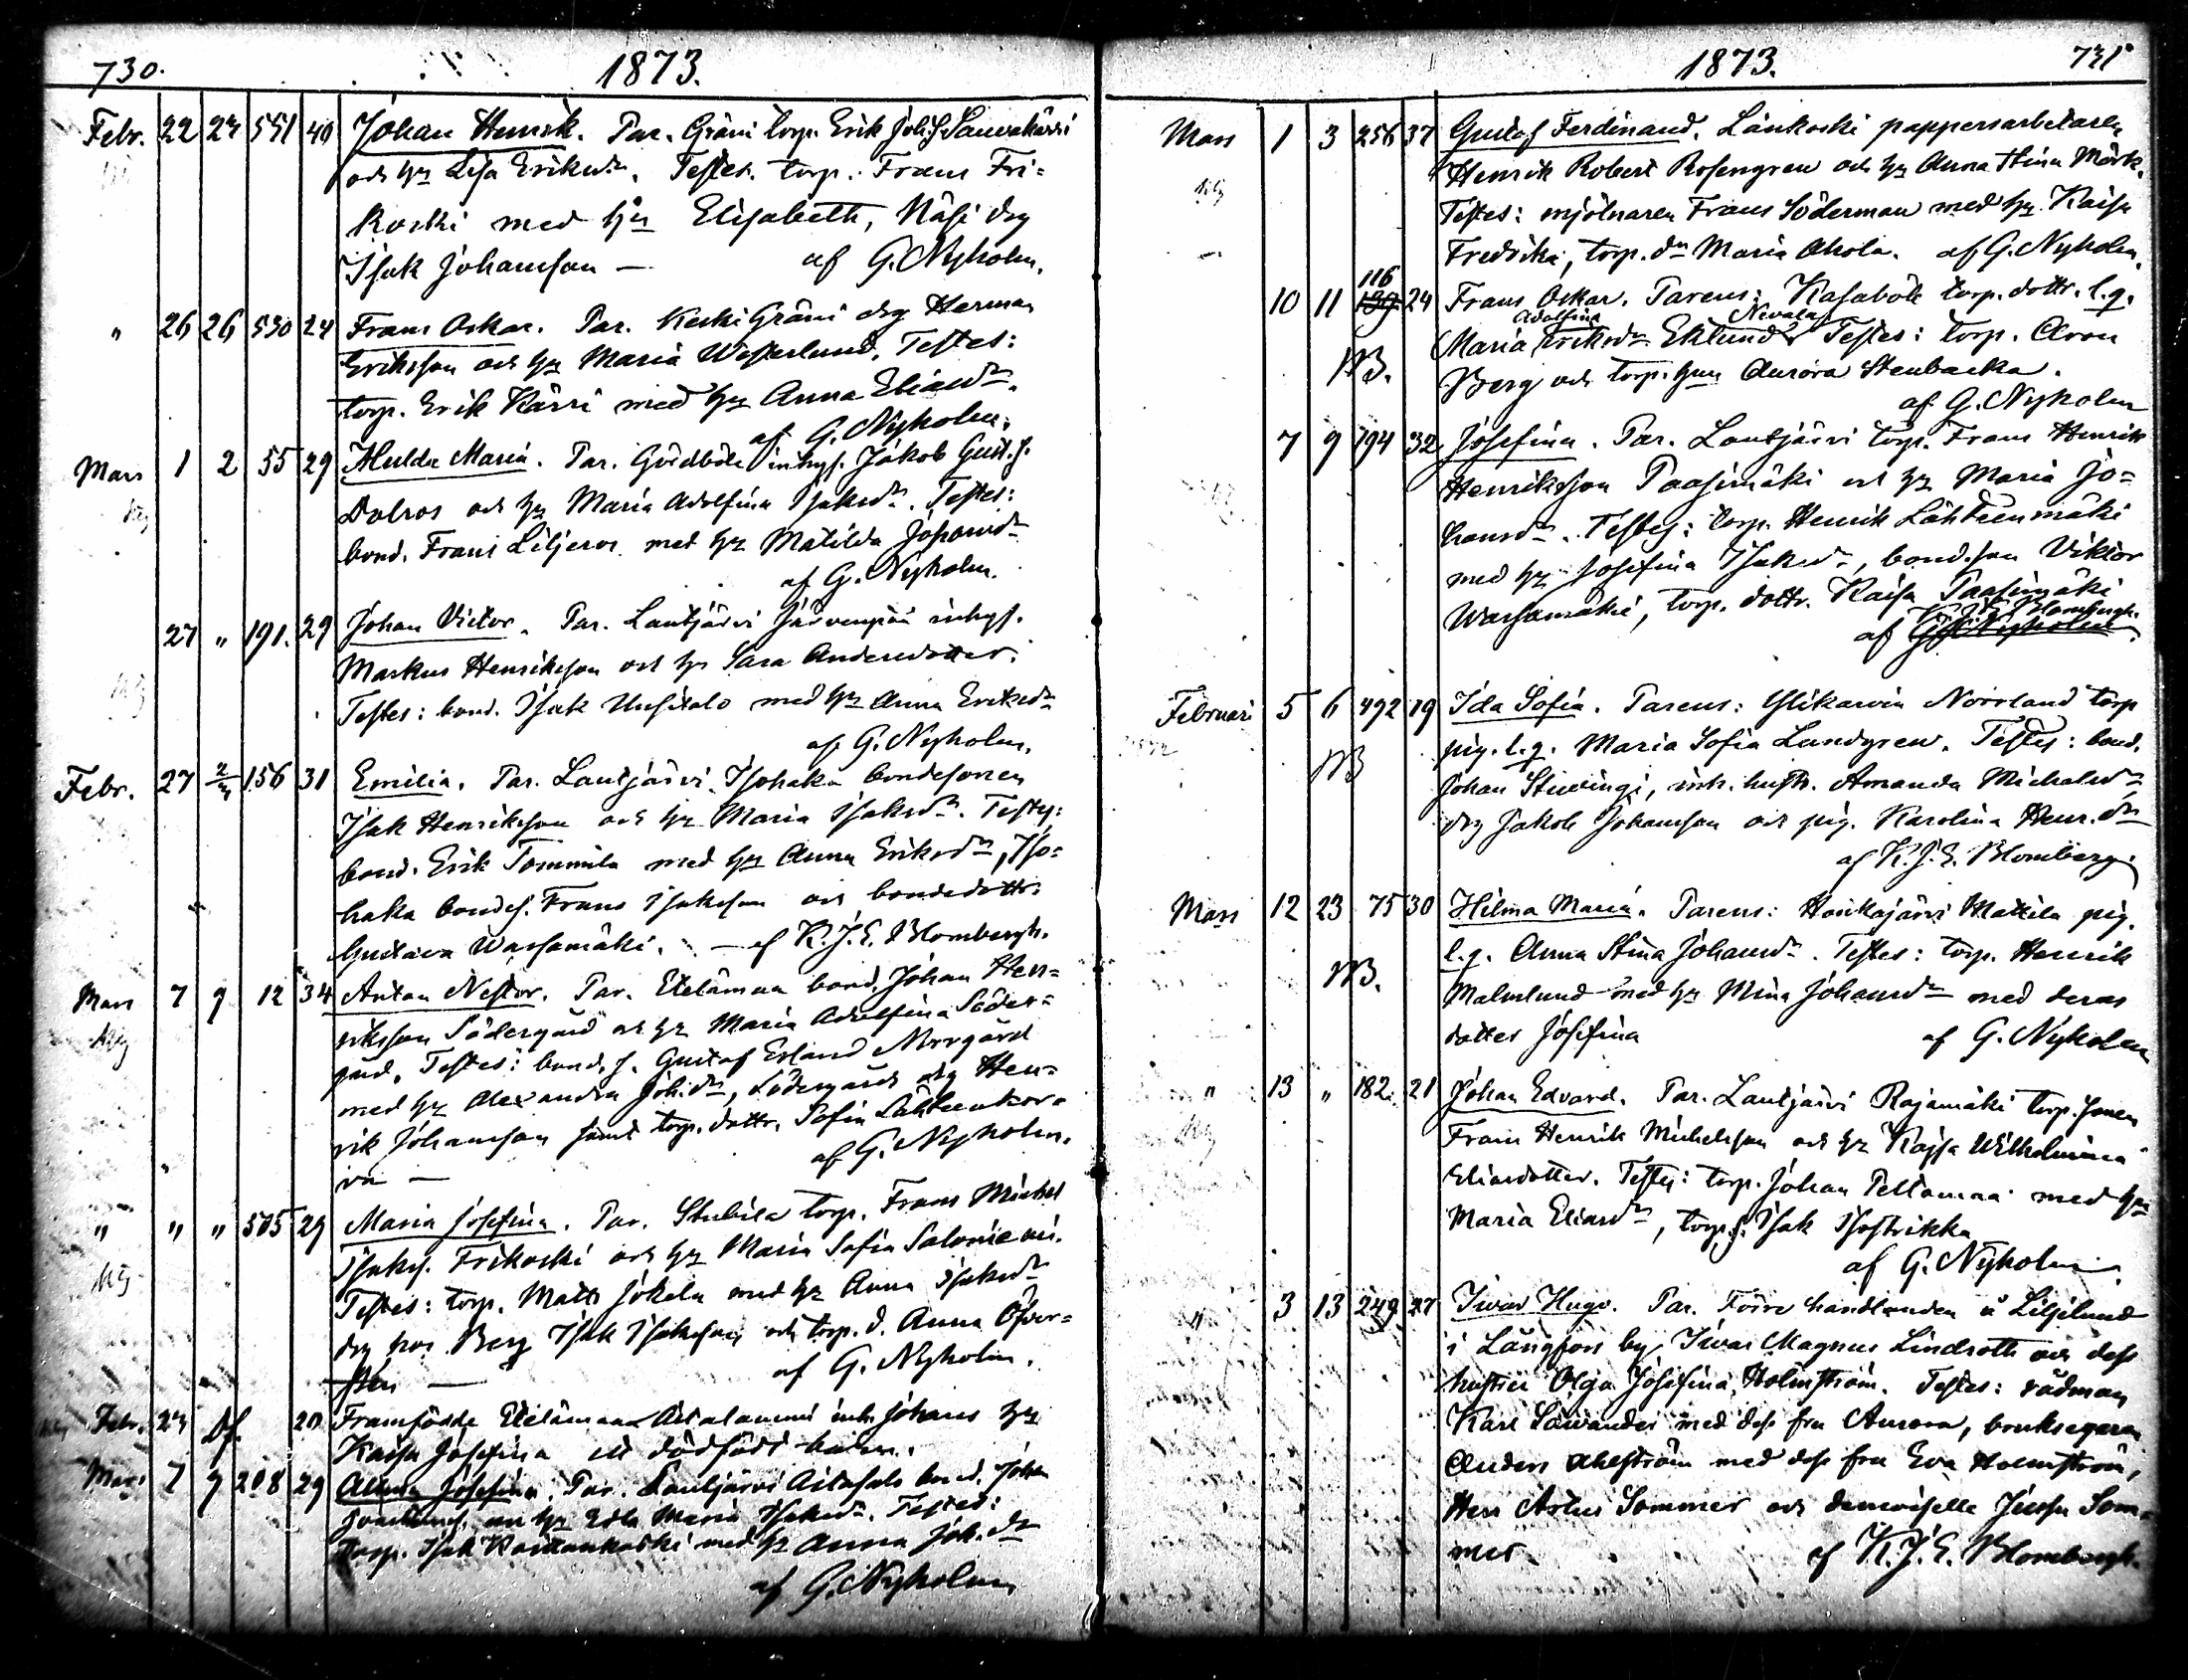 730. 1873.
Febr. 22 24 551 40 Johan Henrik. Par. Gräni torp. Erik Joh:s
och h:u Lisa Eriksd:r. Testes. torp. Frans Fri-
koski med h:u Elisabeth, Näsi drg
Isak Johansson — af G. Nyholm.
" 26 26 530 24 Frans Oskar. Par. Keski Gräni drg Herman
Eriksson och h:u Maria Westerlund. Testes:
torp. Erik Kärri med h:u Anna Eliasd:r.
af G. Nyholm.
Mars 1 2 55 29 Hulda Maria. Par. Gördböle inhys. Jakob Gust.s.
Dalros och h:u Maria Adolfina Isaksd:r. Testes:
bond. Frans Liljeros med h:u Matilda Johansd:r
af G. Nyholm.
27 " 191. 29 Johan Victor. Par. Lautjärvi Järvenpää inhys.
Markus Henriksson och h:u Sara Andersdotter.
Testes: bond. Isak Uusitalo med h:u Anna Eriksd:r
af G. Nyholm.
Febr. 27 2/3 156 31 Emilia. Par. Lautjärvi Isohaka bondesonen
Isak Henriksson och h:u Maria Isaksd:r. Testes:
bond. Erik Tommila med h:u Anna Eriksd:r, Iso-
haka bondes. Frans Isaksson och bondedottr.
Gustava Warsamäki. — af K. J. E. Blombergh.
Mars 7 9 12 34 Anton Nestor. Par. Etelämaa bond. Johan Hen-
riksson Södergård och h:u Maria Adolfina Söder-
gård. Testes: bond. s. Gustaf Erland Norrgård
med h:u Alexandra Joh.d:r, Södergårds drg Hen-
rik Johansson samt torp. dottr. Sofia Lähteenkor-
va — af G. Nyholm.
" " " 505 29 Maria Josefina. Par. Stubila torp. Frans Michel
Isaks. Frikoski och h:u Maria Sofia Saloniemi.
Testes: torp. Matts Jokela med h:u Anna Isaksd:r
drg hos Berg Isak Isaksson och torp. d. Anna Öfver-
sten — af G. Nyholm.
Febr. 24 Df. 20 Framfödde Etelämaa inh. Johans h:u
Kaisa Josefina ett dödfödt barn.
Mars 7 9 208 29 Alma Josefina. Par. Lautjärvi Aitasalo bond. Johan
och h:u Edla Maria Isaksd:r. Testes:
torp. Isak med h:u Anna Joh.d:r
af G. Nyholm
1873. 731
Mars 1 3 256 37 Gustaf Ferdinand. Lankoski pappersarbetaren
Henrik Robert Rosengren och h:u Anna Stina Mörk.
Testes: mjölnaren Frans Söderman med h:u Kaisa
Fredrika, torp. d:r Maria Ahola. af G. Nyholm.
116
10 11 24 Frans Oskar. Parens: Kasaböle torp. dottr. l.q.
Adolfina Nevala
Maria Eriksd:r Eklund Testes: torp. Aron
NB. Berg och torp. hun Aurora Stenbacka.
af G. Nyholm
7 9 194 32 Josefina. Par. Lautjärvi torp. Frans Henrik
Henriksson Paasimäki och h:u Maria Jo-
hansd:r. Testes: torp. Henrik Lähteenmäki
med h:u Josefina Isaksd:r, bond.son Viktor
Warsamäki, torp. dottr. Kaisa Paasimäki
K. J. E. Blombergh.
af G. Nyholm
Februari 5 6 492 19 Ida Sofia. Parens: Ylikarvia Norrland torp
pig. l.q. Maria Sofia Lundgren. Testes: bond.
NB Johan Stuvingi, inh. hustr. Amanda Michelsd:r
drg Jakob Johansson och pig. Karolina Henr.d:r
af K. J. E. Blomberg.
Mars 12 23 75 30 Hilma Maria. Parens: Honkajärvi Mattila pig.
l.q. Anna Stina Johansd:r. Testes: torp. Henrik
NB. Malmlund med h:u Mina Johansd:r med deras
dotter Josefina af G. Nyholm
" 13 " 182. 21 Johan Edvard. Par. Lautjärvi Rajamäki torp. sonen
Frans Henrik Michelsson och h:u Kajsa Wilhelmina
Eliasdotter. Testes: torp. Johan Peltomaa med h:u
Maria Eliasd:r, torp.s. Isak Isostrikka
af G. Nyholm.
" 3 13 249 27 Iwar Hugo. Par. Förre handlanden å Liljelund
i Långfors by Iwar Magnus Lindroth och dess
hustru Olga Josefina Holmström. Testes: rådman
Karl Sawander med dess fru Aurora, bruksegaren
Anders Ahlström med dess fru Eva Holmström,
Herr Artur Sommer och demoiselle Jussa Som-
mer af K. J. E. Blombergh.